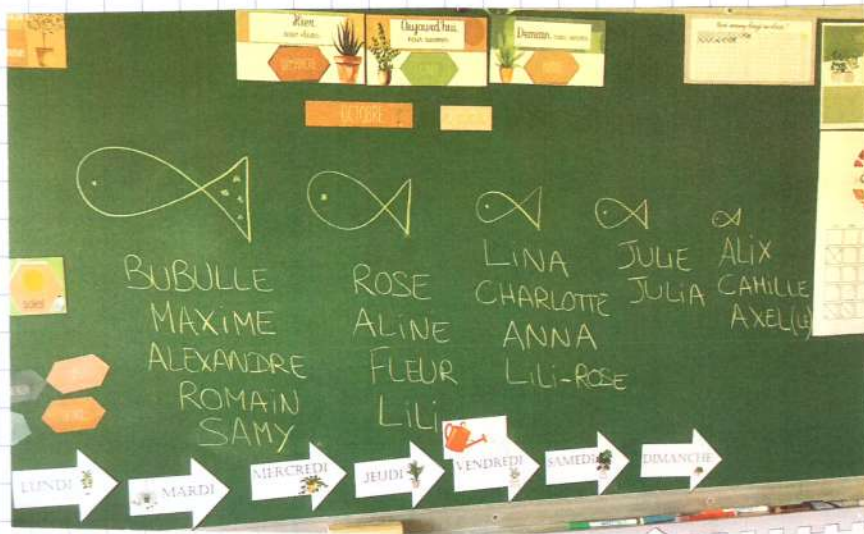 Hier
Aujourd'hui
nous sommes
Demain
DIMANCHE
OCTOBRE
BUBULLE
MAXIME
ALEXANDRE
ROMAIN
SAMY
ROSE
ALINE
FLEUR
LILI
LINA
CHARLOTTE
ANNA
LILI-ROSE
JULIE
JULIA
ALIX
CAMILLE
AXEL(LE)
soleil
LUNDI
MARDI
MERCREDI
JEUDI
VENDREDI
SAMEDI
DIMANCHE